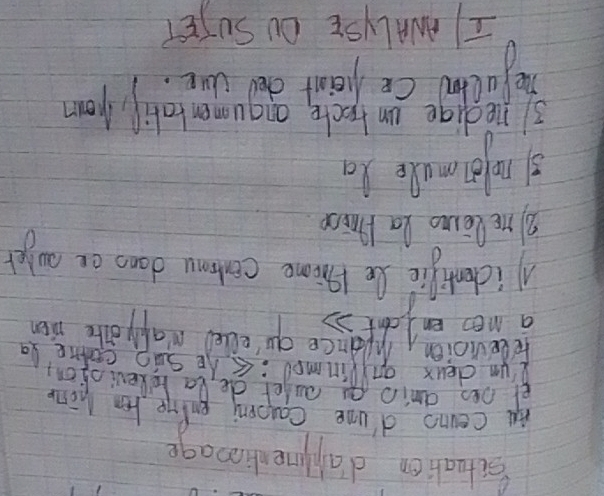 Situation d'apprentissage
Au cours d'une causerie entre ton père
et ses amis au sujet de la television,
l'un deux affirme : << Je suis contre la
television, parce qu'elle n'apporte rien
a mes enfant >>
1) identifie le thème contenu dans ce sujet
2) relève la thèse
3) reformule la
3) redige un texte argumentatif, pour
refuter ce point de vue.
I) ANALYSE DU SUJET